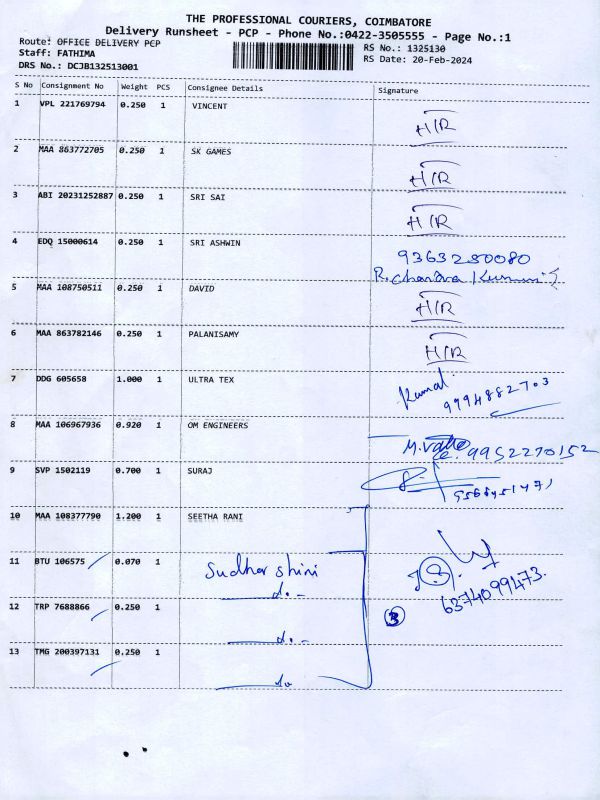 THE PROFESSIONAL COURIERS, COIMBATORE
Delivery Runsheet - PCP - Phone No.:0422-3505555 - Page No.:1
Route: OFFICE DELIVERY PCP RS No.: 1325130
Staff: FATHIMA RS Date: 20-Feb-2024
DRS No.: DCJB132513001
S No Consignment No Weight PCS Consignee Details Signature
1 VPL 221769794 0.250 1 VINCENT H/R
2 MAA 863772705 0.250 1 SK GAMES H/R
3 ABI 20231252887 0.250 1 SRI SAI H/R
4 EDQ 15000614 0.250 1 SRI ASHWIN 9363280080
R. Chandra Kumar
5 MAA 108750511 0.250 1 DAVID H/R
6 MAA 863782146 0.250 1 PALANISAMY H/R
7 DDG 605658 1.000 1 ULTRA TEX Kumal
9994882703
8 MAA 106967936 0.920 1 OM ENGINEERS 9952270152
9 SVP 1502119 0.700 1 SURAJ
10 MAA 108377790 1.200 1 SEETHA RANI
11 BTU 106575 0.070 1 Sudharshini
do -
6374099473
12 TRP 7688866 0.250 1 3
do -
13 TMG 200397131 0.250 1
do